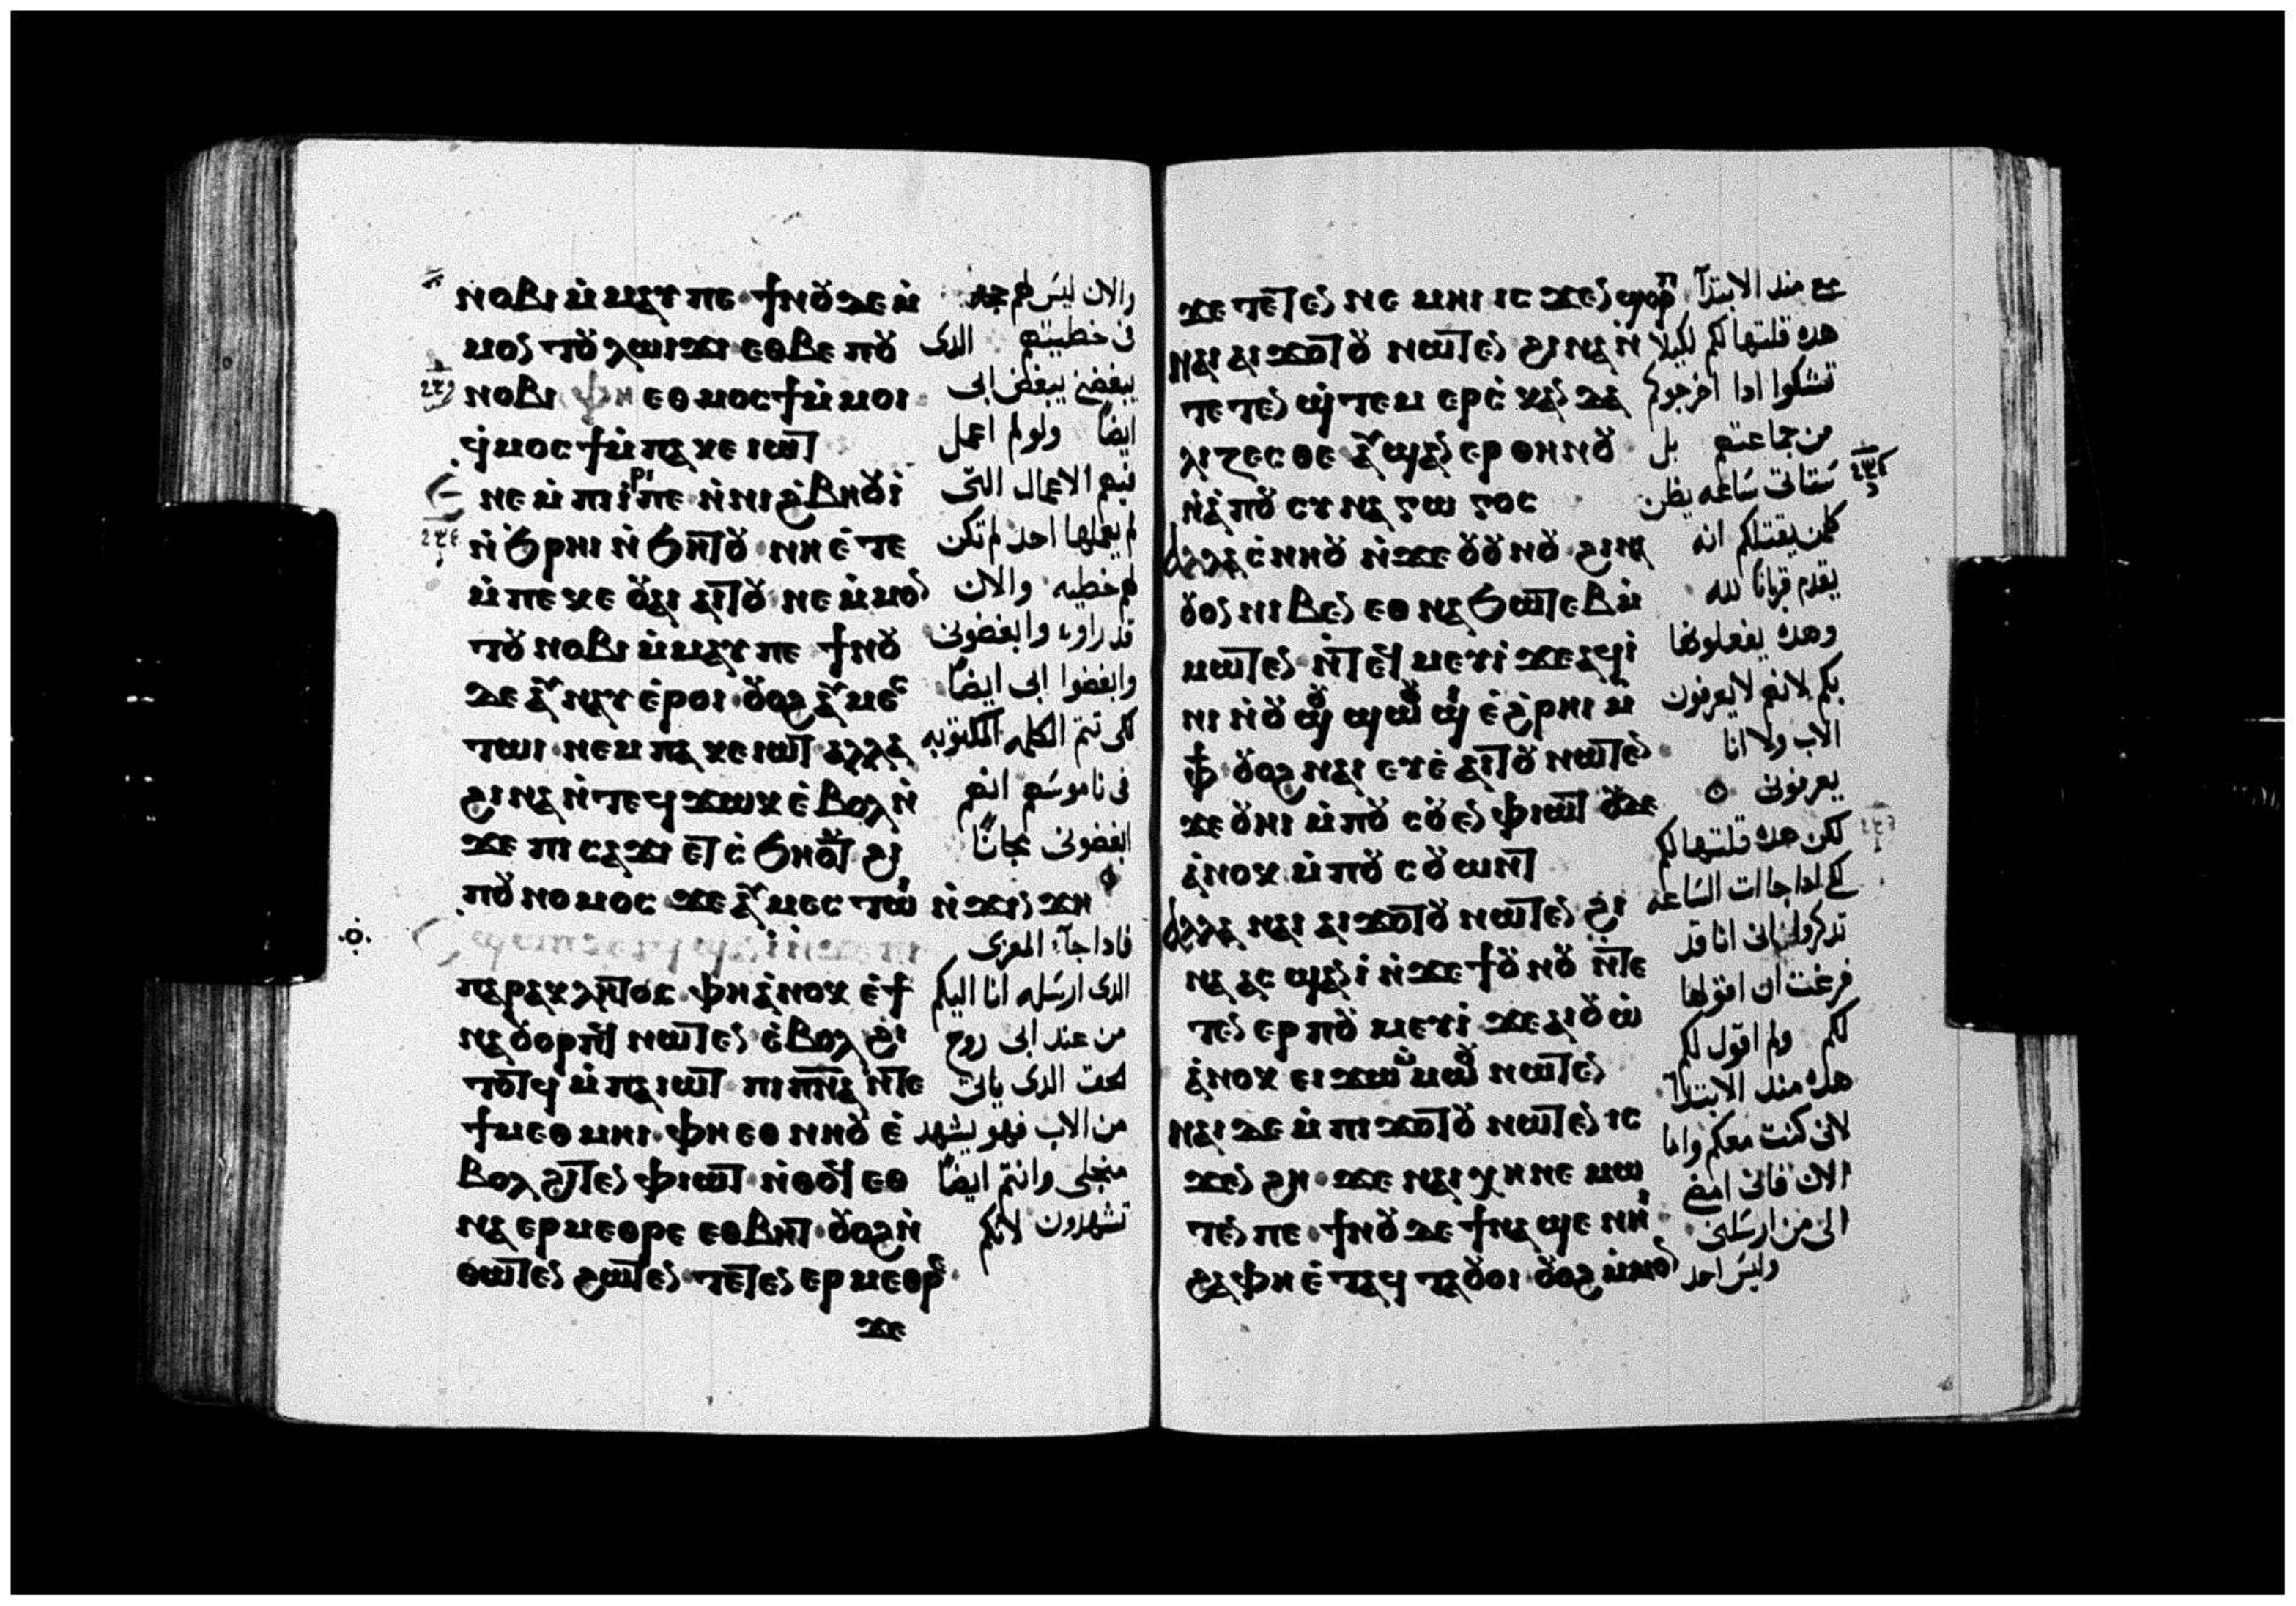 ⲛⲟⲃⲓ ⲙ̇ⲙⲁⲩ ⲡⲉ ϯⲛⲟⲩ ⲇⲉ ⲙ̇
ⲙⲟⲛ ⲧⲟⲩ ⲗⲱⲓϫⲓ ⲉⲑⲃⲉ ⲡⲟⲩ
ⲛⲟⲃⲓ ⲫⲏ ⲉⲑⲙⲟⲥϯ ⲙ̇ⲙⲟⲓ
ϥ̇ⲙⲟⲥϯ ⲙ̇ⲡⲁ ⲕⲉ ⲓⲱⲧ
ⲛⲉ ⲙ̇ⲡⲓⲓⲣⲓ ⲡⲉ ⲛ̇ⲛⲓϩ̇ⲃⲏⲟⲩⲓ̇
ⲛ̇ϧⲣⲏⲓ ⲛ̇ϧⲏⲧⲟⲩ ⲛⲏ ⲉ̇ⲧⲉ
ⲙ̇ⲡⲉ ⲕⲉ ⲟⲩⲁⲓ ⲁⲓⲧⲟⲩ ⲛⲉ ⲙ̇ⲙⲟⲛ
ⲧⲟⲩ ⲛⲟⲃⲓ ⲙ̇ⲙⲁⲩ ⲡⲉ ϯⲛⲟⲩ
ⲇⲉ ⲁⲩⲛⲁⲩ ⲉ̇ⲣⲟⲓ ⲟⲩⲟϩ ⲁⲩⲙⲉⲥ
ⲧⲱⲓ ⲛⲉⲙ ⲡⲁ ⲕⲉ ⲓⲱⲧ ⲁⲗⲗⲁ
ϩⲓⲛⲁ ⲛ̇ⲧⲉϥϫⲱⲕ ⲉ̇ⲃⲟⲗ ⲛ̇
ϫⲉ ⲡⲓⲥⲁϫⲓ ⲉⲧ ⲥ̇ϧⲏⲟⲩⲧ ϩⲓ
ⲡⲟⲩⲛⲟⲙⲟⲥ ϫⲉ ⲁⲩⲙⲉⲥⲧⲱⲓ ⲛ̇ϫⲓⲛϫⲏ
ⲡⲁⲣⲁⲕⲗⲏⲧⲟⲥ ⲫⲏ ⲁ̇ⲛⲟⲕ ⲉ̇ϯ
ⲛⲁⲟⲩⲟⲣⲡϥ ⲛⲱⲧⲉⲛ ⲉ̇ⲃⲟⲗ ϩⲓ
ⲧⲟⲧϥ ⲙ̇ⲡⲁⲓⲱⲧ ⲡⲓⲡ̅ⲛ̅ⲁ̅ ⲛ̇ⲧⲉ
ϯⲙⲉⲑⲙⲏⲓ ⲫⲏ ⲉⲑⲛⲏⲟⲩ ⲉ̇
ⲃⲟⲗ ϩⲓⲧⲉⲛ ⲫⲓⲱⲧ ⲛ̇ⲑⲟϥ ⲉⲑ
ⲛⲁⲉⲣⲙⲉⲑⲣⲉ ⲉⲑⲃⲏⲧ ⲟⲩⲟϩ ⲛ̇
ⲑⲱⲧⲉⲛ ϩⲱⲧⲉⲛ ⲧⲉⲧⲉⲛⲉⲣⲙⲉⲑⲣⲉ
ϫⲉ
والان ليس لهم حجه
فى خطيتهم الدى
يبغضنى يبغض ابى
ايضا ولو لم اعمل
فيهم الاعمال التى
لم يعملها احد لم تكن
لهم خطيه والان
قد راونى وابغضونى
وابغضوا ابى ايضاً
لكى تتم الكلمه المكتوبه
فى ناموسهم انهم
ابغضونى مجاناً
فادا جآء المعزى
الدى ارسله انا اليكم
من عند ابى روح
الحق الدى ياتى
من الاب فهو يشهد
منجلى وانتم ايضاً
تشهدون لانكم
ϫⲉ ⲧⲉⲧⲉⲛ ⲛⲉⲙⲏⲓ ⲓⲥϫⲉⲛ ϣⲟⲣⲡ
ⲛⲁⲓ ⲁⲓϫⲟⲧⲟⲩ ⲛⲱⲧⲉⲛ ϩⲓⲛⲁ ⲛ̇
ⲧⲉⲧⲉⲛ ϣ̇ⲧⲉⲙ ⲉⲣⲥ̇ⲕⲁⲛⲇⲁ
ⲗⲓⲍⲉⲥⲑⲉ ⲁⲩϣⲁⲛⲉⲣ ⲑⲏⲛⲟⲩ
ⲛ̇ⲁ̇ⲡⲟⲥⲩⲛⲁⲅⲱⲅⲟⲥ
ⲁⲗⲗⲁ ⲥ̇ⲛⲏⲟⲩ ⲛ̇ϫⲉ ⲟⲩⲟⲩⲛⲟⲩ ϩⲓⲛⲁ
ⲟⲩⲟⲛ ⲛⲓⲃⲉⲛ ⲉⲑⲛⲁϧⲱⲧⲉⲃ ⲙ̇
ⲙⲱⲧⲉⲛ ⲛ̇ⲧⲉϥⲙⲉⲩⲓ̇ ϫⲉ ⲁϥⲓ̇
ⲛⲓ ⲛ̇ⲟⲩϣⲟⲩϣⲱⲟⲩϣⲓ ⲉ̇ϩ̇ⲣⲏⲓ ⲙ̇
ⲫϯ ⲟⲩⲟϩ ⲛⲁⲓ ⲉⲩⲉ̇ⲁⲓⲧⲟⲩ ⲛⲱⲧⲉⲛ
ϫⲉ ⲟⲩⲏⲓ ⲙ̇ⲡⲟⲩⲥⲟⲩⲉⲛ ⲫⲓⲱⲧ ⲟⲩⲇⲉ
ⲁ̇ⲛⲟⲕ ⲙ̇ⲡⲟⲩⲥⲟⲩⲱⲛⲧ
ⲁⲗⲗⲁ ⲛⲁⲓ ⲁⲓϫⲟⲧⲟⲩ ⲛⲱⲧⲉⲛ ϩⲓ
ⲛⲁ ⲁⲥϣⲁⲛⲓ̇ ⲛ̇ϫⲉ ϯⲟⲩⲛⲟⲩ ⲛ̇ⲧⲉ
ⲧⲉⲛⲉⲣⲡⲟⲩⲙⲉⲩⲓ̇ ϫⲉ ⲁⲓⲟⲩⲱ
ⲁ̇ⲛⲟⲕ ⲉⲓϫⲱ ⲙ̇ⲙⲱⲟⲩ ⲛⲱⲧⲉⲛ
ⲛⲁⲓ ⲇⲉ ⲙ̇ⲡⲓϫⲟⲧⲟⲩ ⲛⲱⲧⲉⲛ ⲓⲥ
ϫⲉⲛ ϩⲏ ϫⲉ ⲛⲁⲓⲭⲏ ⲛⲉⲙⲱ
ⲧⲉⲛ ⲡⲉ ϯⲛⲟⲩ ⲇⲉ ϯⲛⲁϣⲉ ⲛⲏⲓ
ϩⲁ ⲫⲏ ⲉ̇ⲧⲁϥⲧⲁⲟⲩⲟⲓ ⲟⲩⲟϩ ⲙ̇ⲙⲟⲛ
معى مند الابتدآ
هده قلتها لكم لكيلا
تشكوا ادا اخرجوكم
من جماعتهم بل
ستاتى ساعه يظن
كلمن يقتلكم انه
يقدم قربانا لله
وهده يفعلونها
بكم لانهم لا يعرفون
الاب ولا انا
يعرفونى
لكن هده قلتها لكم
لكى ادا جاات الساعه
تدكروا انى انا قد
فرغت ان اقولها
لكم ولم اقول لكم
هده مند الابتدآ
لانى كنت معكم واما
الان فانى امضى
الى من ارسلنى
وليس احد